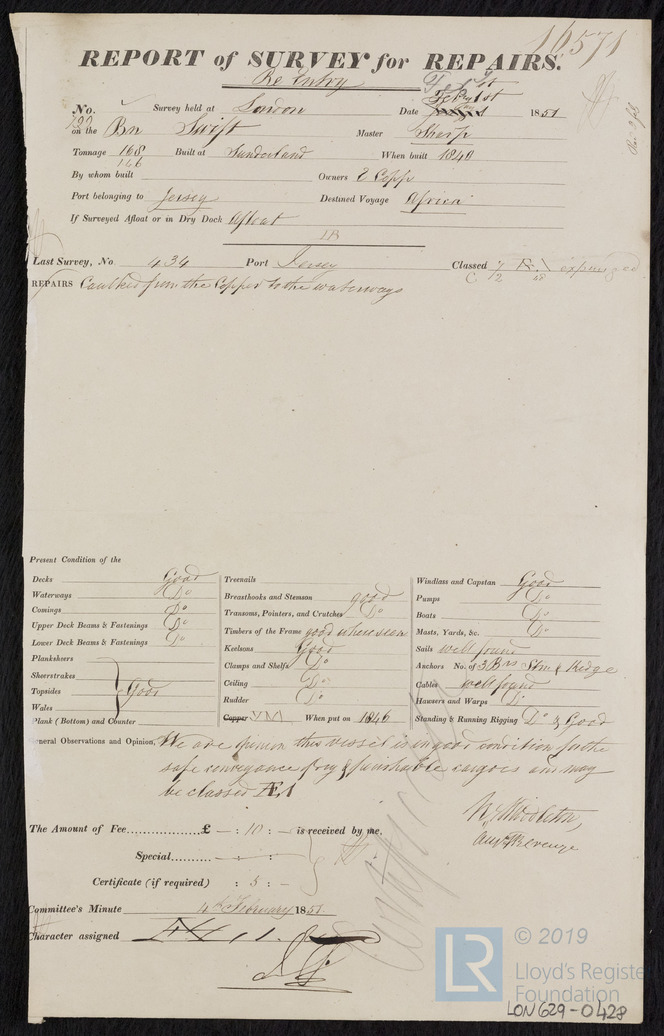 16571
REPORT of SURVEY for REPAIRS.
Re Entry
No. 799 Survey held at London Date Feby 1st 1851
on the Bn Swift Master Sharp
Tonnage 168 Built at Sunderland When built 1840
166
By whom built Owners E Copp
Port belonging to Jersey Destined Voyage Africa
If Surveyed Afloat or in Dry Dock Afloat
Last Survey, No 434 Port Jersey Classed Æ1 expunged
REPAIRS Caulked from the Copper to the waterways
Present Condition of the
Decks Good
Waterways Do
Comings Do
Upper Deck Beams & Fastenings Do
Lower Deck Beams & Fastenings Do
Planksheers
Sheerstrakes
Topsides Good
Wales
Plank (Bottom) and Counter
Treenails
Breasthooks and Stemson good
Transoms, Pointers, and Crutches Do
Timbers of the Frame good where seen
Keelsons Good
Clamps and Shelfs Do
Ceiling Do
Rudder Do
Copper YM When put on 1846
Windlass and Capstan Good
Pumps Do
Boats Do
Masts, Yards, &c. Do
Sails well found
Anchors No. of 3 Brs Stm & Kedge
Cables well found
Hawsers and Warps Do
Standing & Running Rigging Do & Good
General Observations and Opinion, We are opinion this vessel is in good condition for the
safe conveyance of dry & perishable cargoes and may
be classed Æ1
The Amount of Fee............... £ — : 10 : — is received by me,
Special......... — : — :
Certificate (if required) : 5 : —
Committee's Minute 4th February 1851
Character assigned Æ 1
© 2019
LR
Lloyd's Register
Foundation
LON629-0428